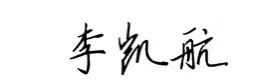 李凯航